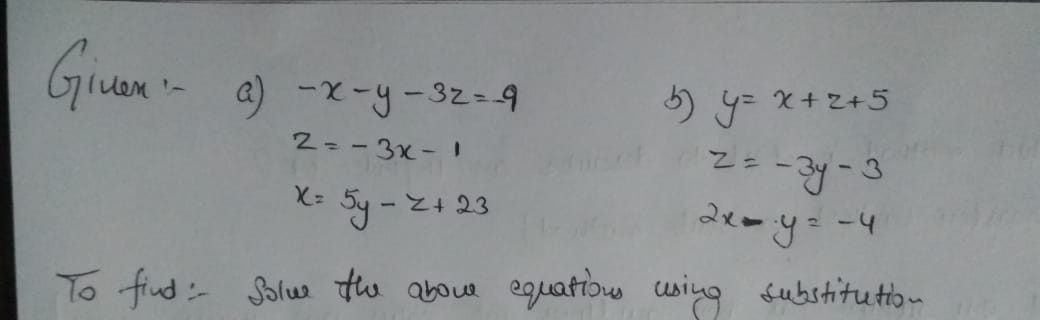 Given :- a) -x - y - 3z = -9 b) y = x + z + 5
z = -3x - 1 z = -3y - 3
x = 5y - z + 23 2x - y = -4
To find :- Solve the above equations using substitution